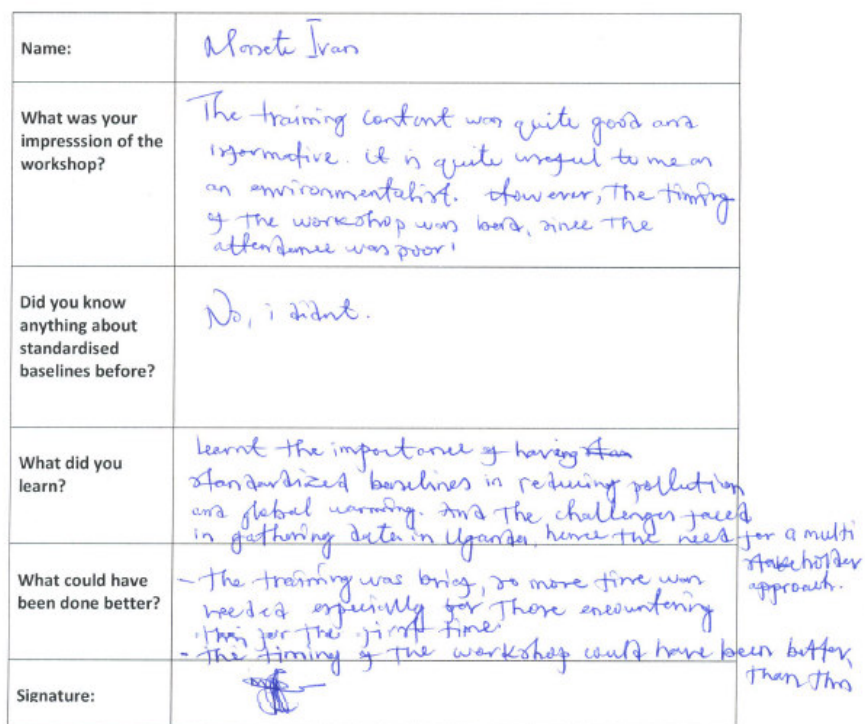 Name:
Ivan
What was your
impresssion of the
workshop?
The training content was quite good and
informative. it is quite useful to me as
an environmentalist. However, the timing
of the workshop was bad, since the
attendance was poor!
Did you know
anything about
standardised
baselines before?
No, i didnt.
What did you
learn?
Learnt the importance of having stan
standardized baselines in reducing pollution
and global warming. And the challenges faced
in gathering data in Uganda, hence the need for a multi
stakeholder
approach.
What could have
been done better?
- The training was brief, so more time was
needed especially for those encountering
this for the first time.
- The timing of the workshop could have been better,
than this
Signature: